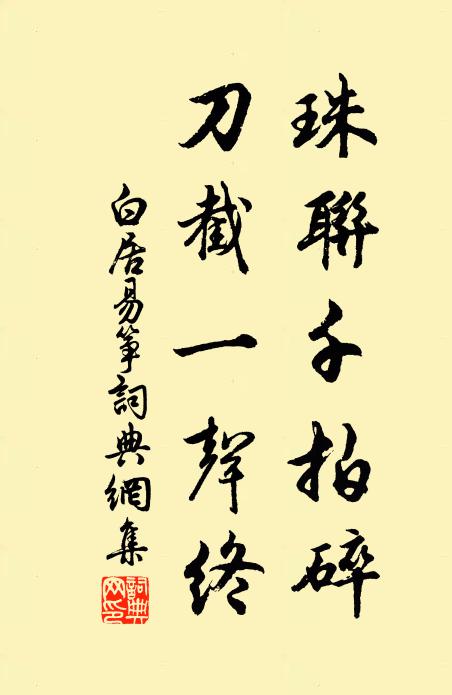 珠聯千拍碎
刀截一聲終
白居易箏詞典網集
詞典網印